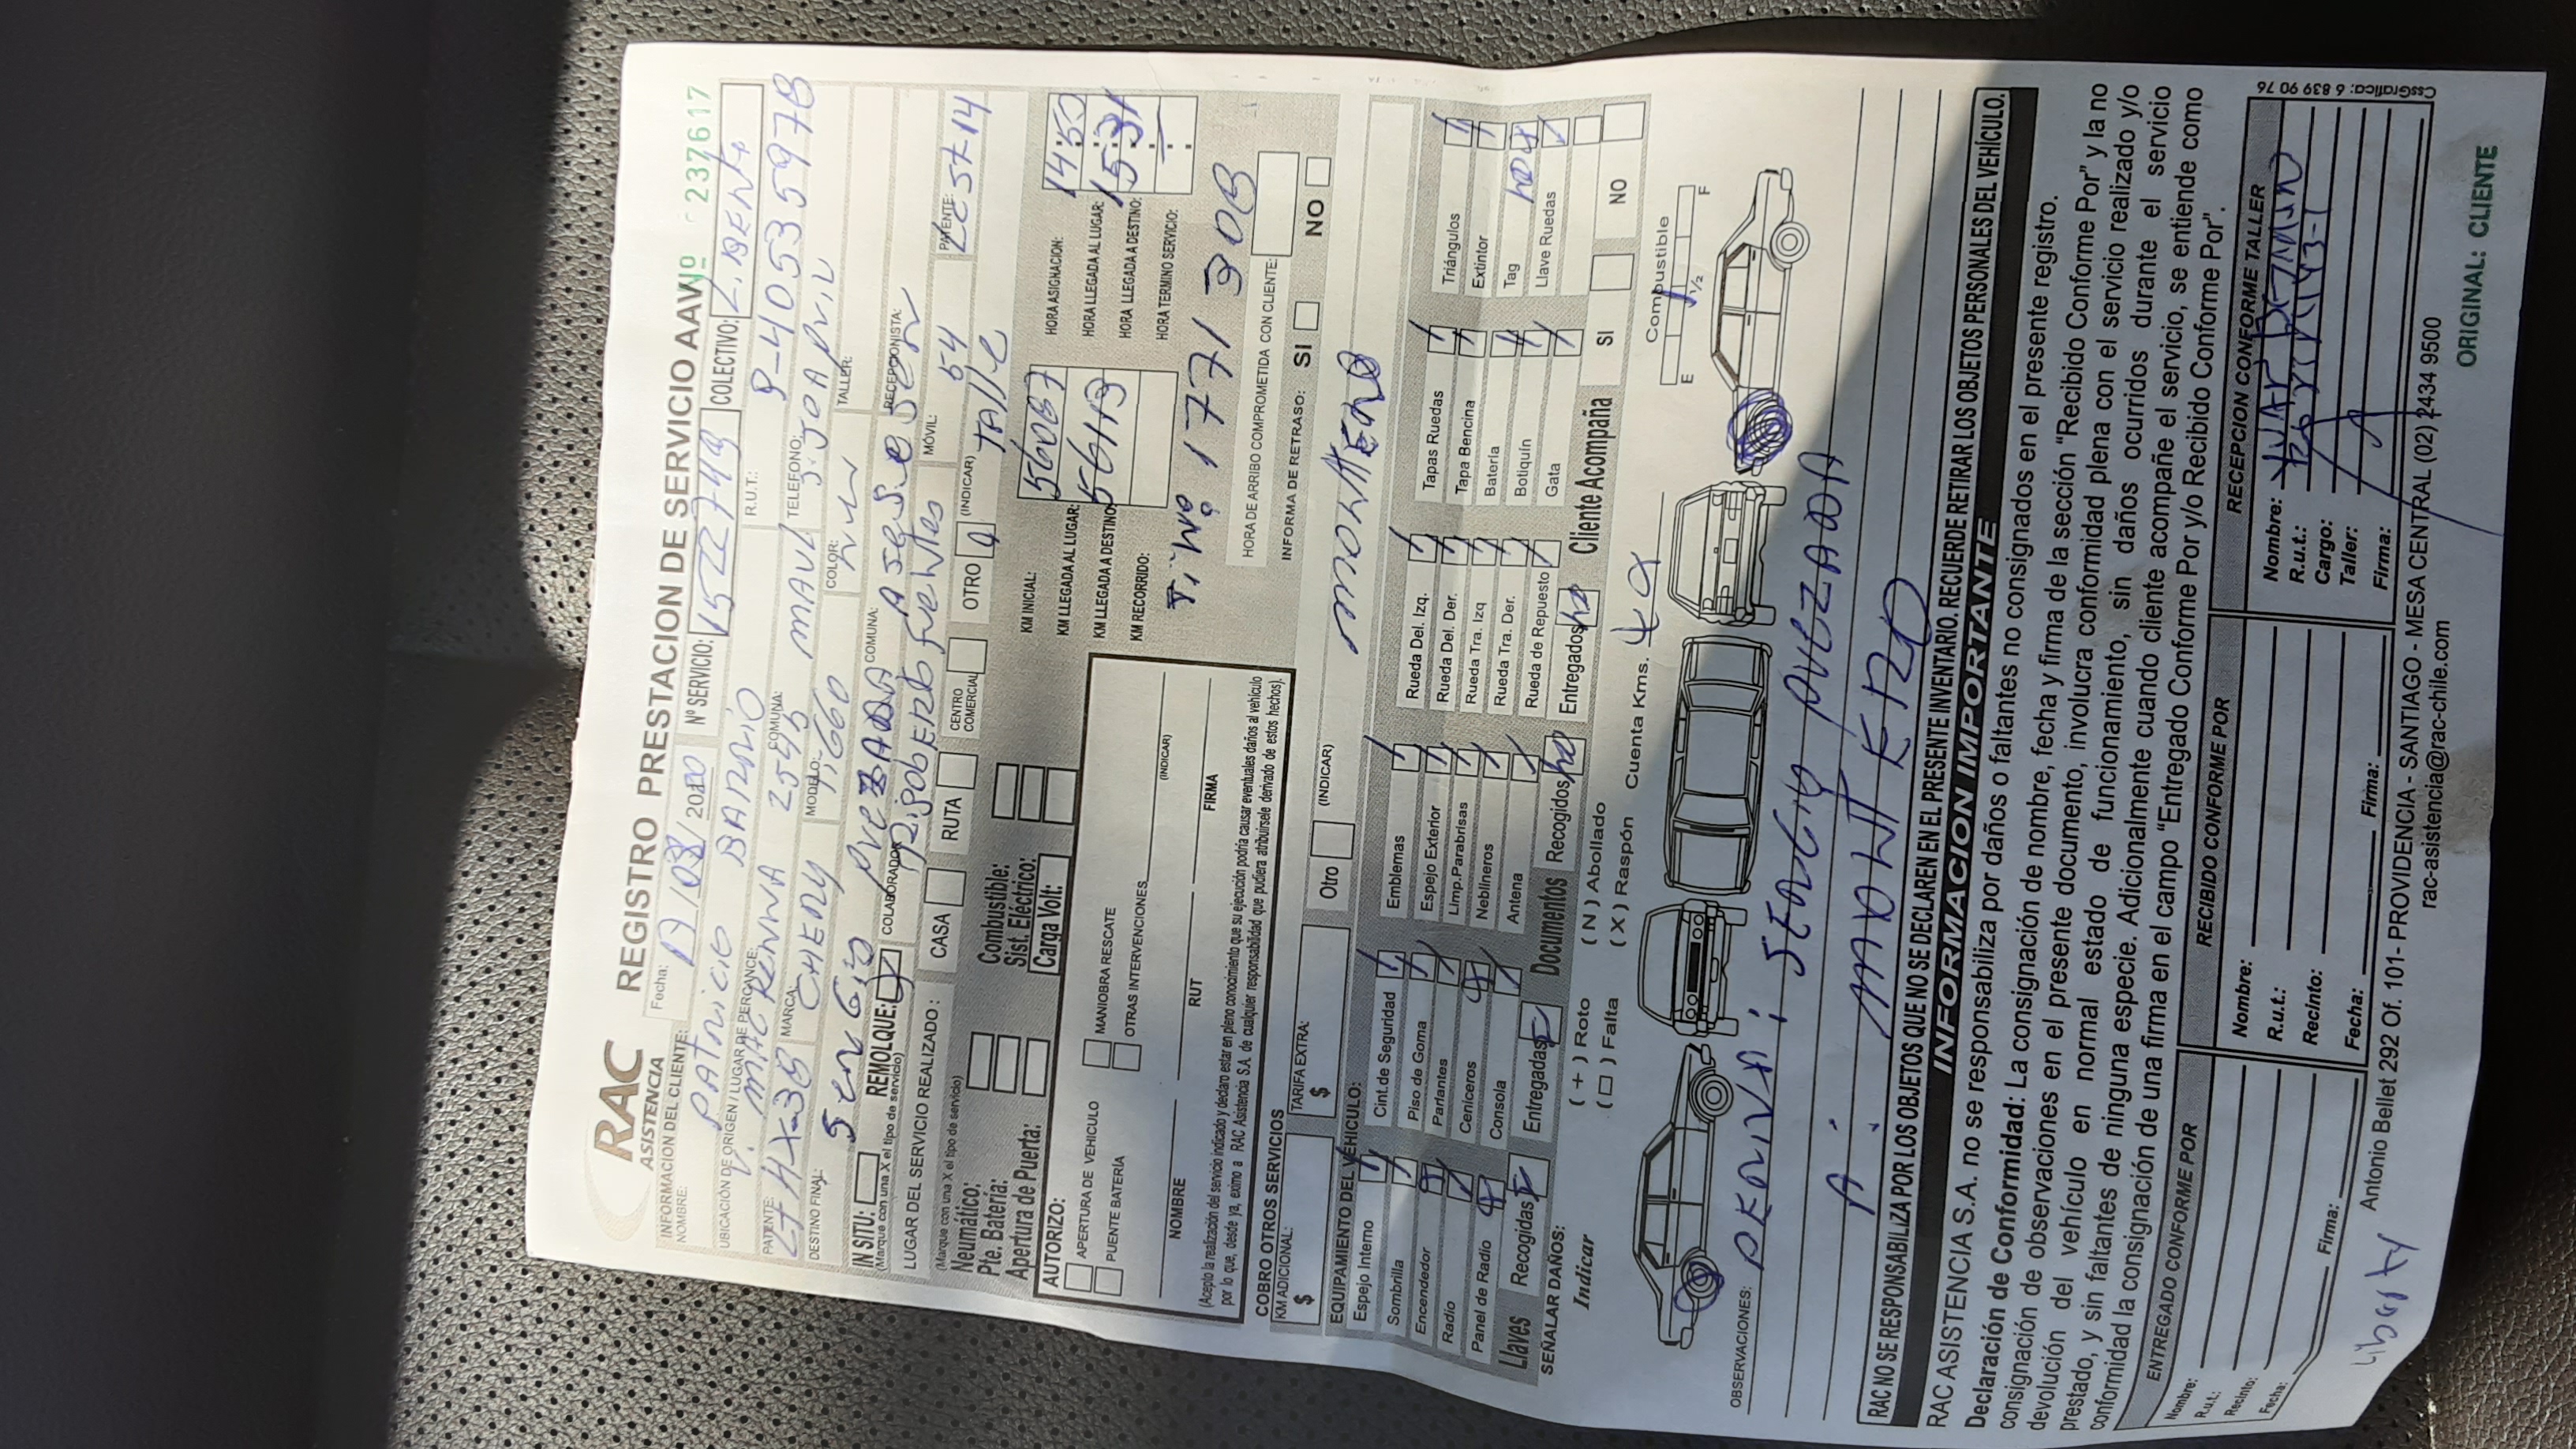 RAC
ASISTENCIA
REGISTRO PRESTACION DE SERVICIO AAV Nº 237617
INFORMACION DEL CLIENTE: Fecha: / 2020 Nº SERVICIO: 1522749 COLECTIVO:
NOMBRE: PATRICIO BARRIO R.U.T.:
UBICACIÓN DE ORIGEN / LUGAR DE PERCANCE: V. MACKENNA 2545 COMUNA: MAUL TELEFONO: 9-40535978
PATENTE: MARCA: CHERY MODELO: COLOR: TALLER:
DESTINO FINAL: COMUNA: RECEPCIONISTA:
IN SITU: REMOLQUE: COLABORADOR: Rigoberto fuentes MÓVIL: 54 PATENTE:
(Marque con una X el tipo de servicio)
LUGAR DEL SERVICIO REALIZADO: CASA RUTA CENTRO COMERCIAL OTRO (INDICAR) TAller
(Marque con una X el tipo de servicio)
Neumático: Combustible: KM INICIAL: HORA ASIGNACION:
Pte. Batería: Sist. Eléctrico: KM LLEGADA AL LUGAR: HORA LLEGADA AL LUGAR: 14:50
Apertura de Puerta: Carga Volt: KM LLEGADA A DESTINO: 56113 HORA LLEGADA A DESTINO: 15:31
KM RECORRIDO: HORA TERMINO SERVICIO:
AUTORIZO:
APERTURA DE VEHICULO MANIOBRA RESCATE
PUENTE BATERÍA OTRAS INTERVENCIONES
(INDICAR)
NOMBRE RUT FIRMA
(Acepto la realización del servicio indicado y declaro estar en pleno conocimiento que su ejecución podría causar eventuales daños al vehículo
por lo que, desde ya, eximo a RAC Asistencia S.A. de cualquier responsabilidad que pudiera atribuírsele derivado de estos hechos).
HORA DE ARRIBO COMPROMETIDA CON CLIENTE:
INFORMA DE RETRASO: SI NO
COBRO OTROS SERVICIOS
KM ADICIONAL: $ TARIFA EXTRA: $ Otro (INDICAR)
EQUIPAMIENTO DEL VEHICULO:
Espejo Interno Cint.de Seguridad Emblemas Rueda Del. Izq. Tapas Ruedas Triángulos
Sombrilla Piso de Goma Espejo Exterior Rueda Del. Der. Tapa Bencina Extintor
Encendedor Parlantes Limp.Parabrisas Rueda Tra. Izq Batería Tag
Radio Ceniceros Neblineros Rueda Tra. Der. Botiquín Llave Ruedas
Panel de Radio Consola Antena Rueda de Repuesto Gata
Llaves Recogidas Entregadas Documentos Recogidos no Entregados no Cliente Acompaña SI NO
SEÑALAR DAÑOS:
Indicar ( + ) Roto ( N ) Abollado
( □ ) Falta ( X ) Raspón Cuenta Kms. Combustible E ½ F
OBSERVACIONES: DERIVA: SERGIO
A: MONTERO
RAC NO SE RESPONSABILIZA POR LOS OBJETOS QUE NO SE DECLAREN EN EL PRESENTE INVENTARIO. RECUERDE RETIRAR LOS OBJETOS PERSONALES DEL VEHÍCULO.
INFORMACION IMPORTANTE
RAC ASISTENCIA S.A. no se responsabiliza por daños o faltantes no consignados en el presente registro.
Declaración de Conformidad: La consignación de nombre, fecha y firma de la sección "Recibido Conforme Por" y la no
consignación de observaciones en el presente documento, involucra conformidad plena con el servicio realizado y/o
devolución del vehículo en normal estado de funcionamiento, sin daños ocurridos durante el servicio
prestado, y sin faltantes de ninguna especie. Adicionalmente cuando cliente acompañe el servicio, se entiende como
conformidad la consignación de una firma en el campo "Entregado Conforme Por y/o Recibido Conforme Por".
ENTREGADO CONFORME POR RECIBIDO CONFORME POR RECEPCION CONFORME TALLER
Nombre: Nombre: Nombre:
R.u.t.: R.u.t.: R.u.t.:
Recinto: Recinto: Cargo:
Fecha: Firma: Fecha: Firma: Taller:
Firma:
CssGrafica: 6 839 90 76
Liberty Antonio Bellet 292 Of. 101- PROVIDENCIA - SANTIAGO - MESA CENTRAL (02) 2434 9500
rac-asistencia@rac-chile.com
ORIGINAL: CLIENTE